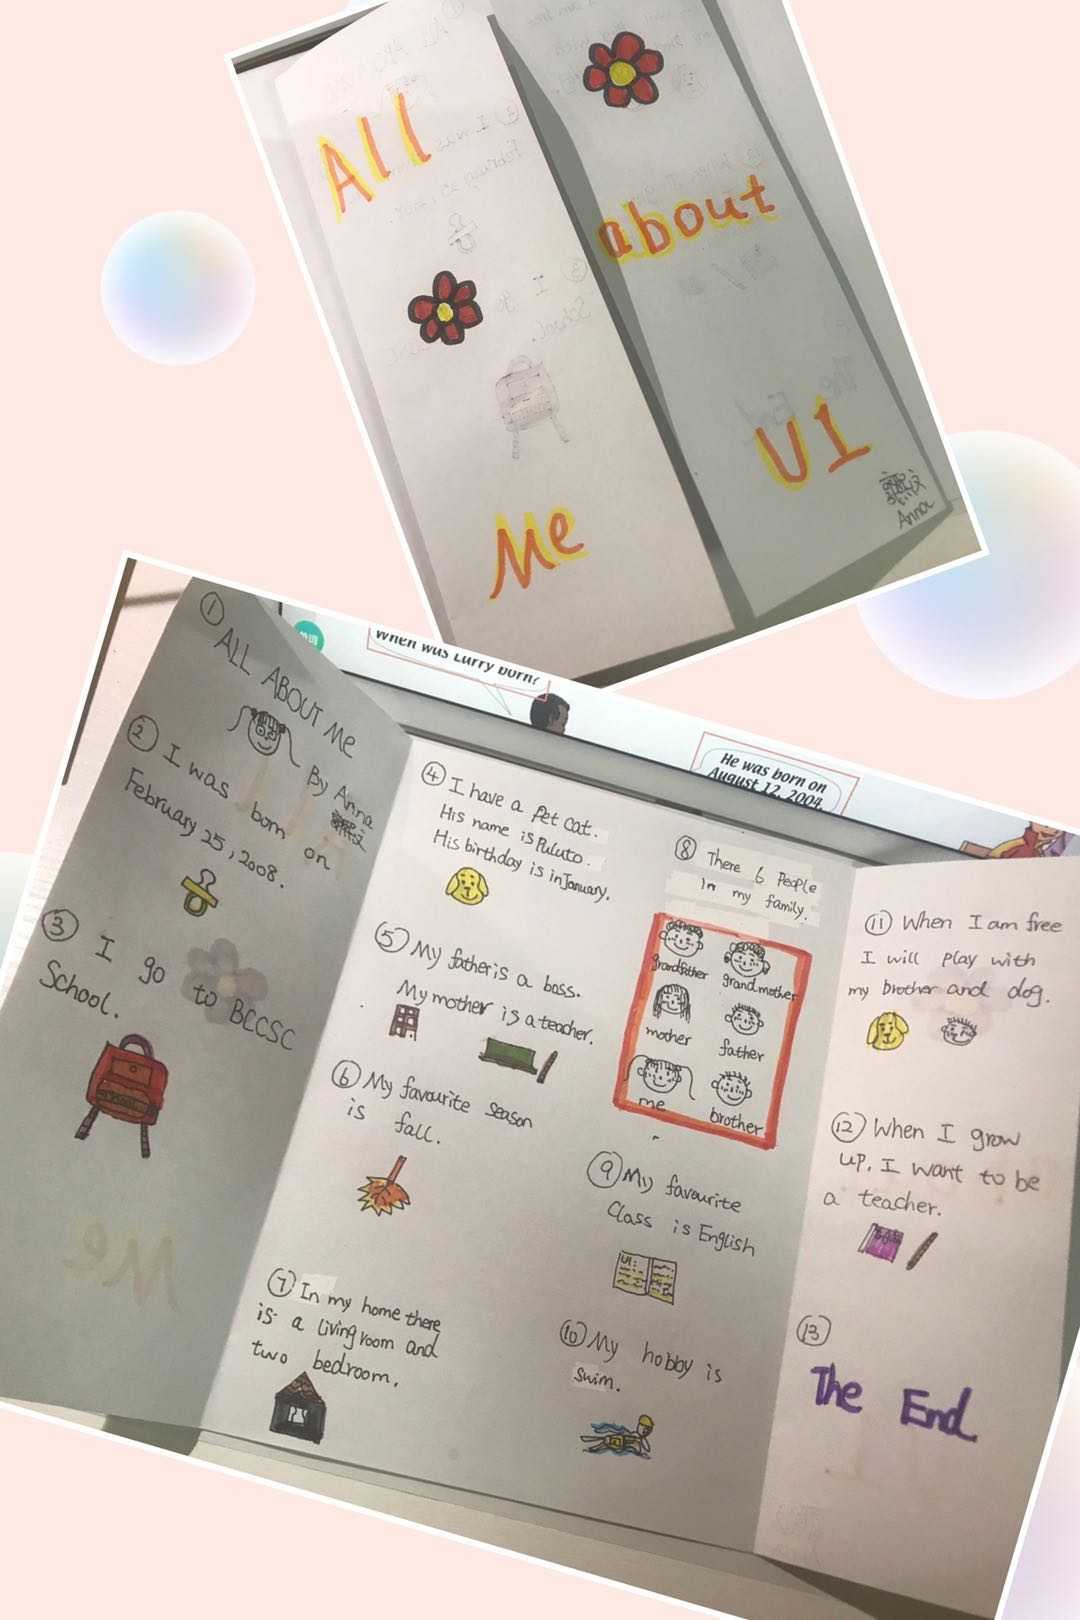 All
about
Me
U1
Anna
When was Larry born?
He was born on
August 12, 2004.
① ALL ABOUT Me
By Anna
② I was born on
February 25, 2008.
③ I go to BCCSC
School.
④ I have a Pet cat.
His name is Puluto.
His birthday is in January.
⑤ My father is a boss.
My mother is a teacher.
⑥ My favourite season
is fall.
⑦ In my home there
is a living room and
two bedroom.
⑧ There 6 People
in my family.
grandfather
grandmother
mother
father
me
brother
⑨ My favourite
Class is English
U1:
⑩ My hobby is
Swim.
⑪ When I am free
I will play with
my brother and dog.
⑫ When I grow
up, I want to be
a teacher.
⑬
The End